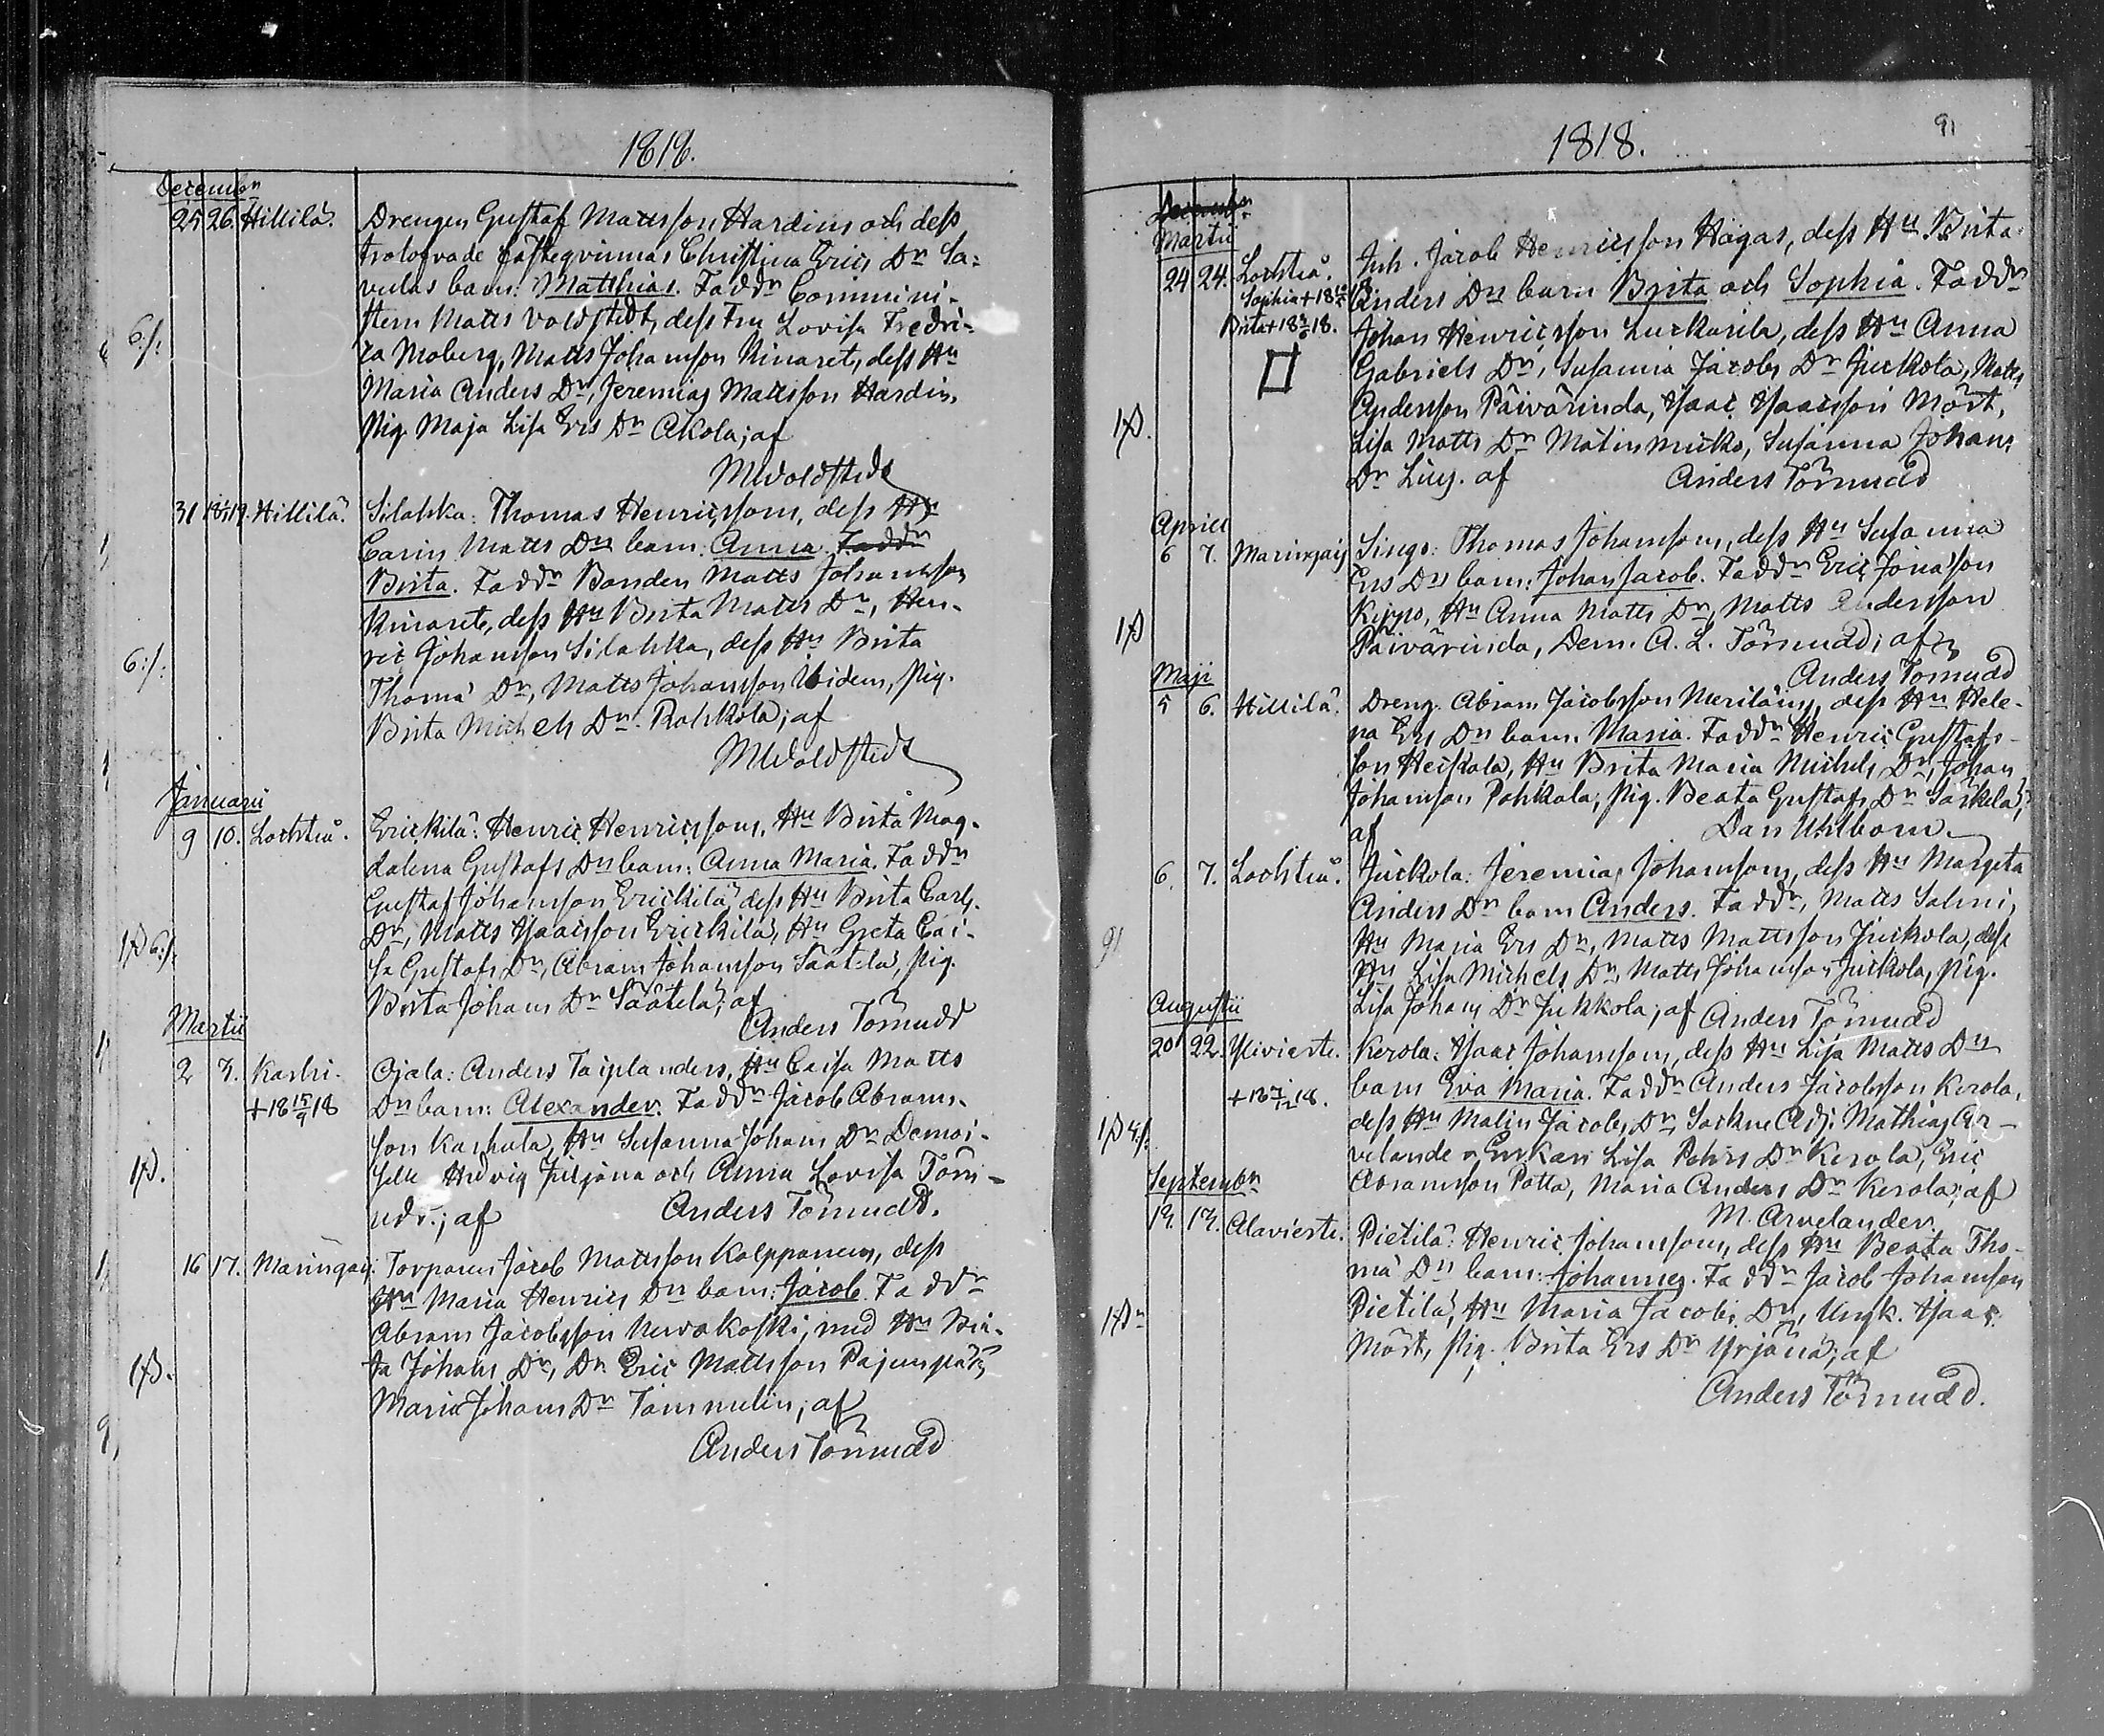 1818.
Decembr
25 26. Hillilä. Drengen Gustaf Mattsson Hardins och dess
trolofvade Fästeqvinnas Christina Erics Dr Sa-
vulas barn: Matthias. Faddr Commini-
stern Matts Woldstedt, dess Fru Lovisa Fredri-
6:/: ca Moberg, Matts Johansson Ainaret, dess Hu
Maria Anders Dr, Jeremias Mattsson Hardin,
Pig. Maja Lisa Ers Dr Akola; af
MWoldstedt
31 Hillilä. Silahka: Thomas Henricssons, dess Hu
Carin Matts Drs barn: Anna Faddr
Brita. Faddr Bonden Matts Johansson
Ainaret, dess Hu Brita Matts Dr, Hen-
ric Johansson Silahka, dess Hu Brita
6:/: Thomä Dr, Matts Johansson Ibidem, Pig.
Brita Michels Dr Rahkola; af
MWoldstedt
Januarii
9 10. Lochteå. Erickilä: Henric Henricssons, Hu Brita Mag-
dalena Gustafs Drs barn: Anna Maria. Faddr
Gustaf Johansson Erickilä, dess Hu Brita Carls
Dr, Matts Isaacsson Erickilä, Hu Greta Cai-
sa Gustafs Dr, Abram Johansson Säätelä, Pig.
Brita Johans Dr Säätelä; af
Anders Törnudd
Martii
2 3. Karhi- Ojala: Anders Taiplanders, Hu Caisa Matts
+18 15/9 18 Drs barn: Alexander. Faddr Jacob Abrams-
son Karhula, Hu Susanna Johans Dr Demoi-
selle Hedvig Juljana och Anna Lovisa Törn-
udd; af Anders Törnudd.
16 17. Maringais: Torparen Jacob Mattsson Kalpparens, dess
Hu Maria Henrics Drs barn: Jacob. Faddr
Abram Jacobsson Nervakoski, med Hu Bri-
ta Johans Dr, Dr. Eric Mattsson Pajunpää
Maria Johans Dr Tammelin; af
Anders Törnudd
1818.
91
Decembr
Martii
24 24. Lochteå. Inh. Jacob Henricsson Hagas, dess Hu Brita
Sophia + Anders Drs barn Brita och Sophia. Faddr
Brita + Johan Henricsson Luckarila, dess Hu Anna
Gabriels Dr, Susanna Jacobs Dr Juckola, Matts
Andersson Päivärinda, Isaac Isaacsson Mört,
Lisa Matts Dr Matinmicko, Susanna Johans
Dr Ling. af Anders Törnudd
Aprill
6 7. Maringais Singo: Thomas Johanssons, dess Hu Susanna
Ers Drs barn: Johan Jacob. Faddr Eric Jonasson
Kippo, Hu Anna Matts Dr, Matts Andersson
Päivärinda, Dem. A. L. Törnudd; af
Anders Törnudd
Maji
5 6. Hillilä. Dreng. Abram Jacobsson Meriläins, dess Hu Hele-
na Ers Drs barn. Maria. Faddr Henric Gustafs-
son Heickala, Hu Brita Maria Michels Dr, Johan
Johansson Pohkala, Pig. Beata Gustafs Dr Särkelä;
af Dan Uhlbom.
6. 7. Lochteå. Juckola: Jeremias Johanssons, dess Hu Margeta
Anders Drs barn Anders. Faddr, Matts Salmi,
Hu Maria Ers Dr, Matts Mattsson Juckola, dess
Hu Lisa Michels Dr, Matts Johansson Juckola, Pig.
Lisa Johans Dr Juckola; af Anders Törnudd
Augustii
20 22. Ylivierte. Kerola: Isaac Johanssons, dess Hu Lisa Matts Drs
barn Eva Maria. Faddr Anders Jacobsson Kerola,
dess Hu Malin Jacobs Dr, Sockne Adj. Mathias Ar-
velander, Enkan Lisa Pehrs Dr Kerola, Eric
Abramsson Patta, Maria Anders Dr Kerola; af
M. Arvelander.
Septembr
13. 13. Alavierte. Pietilä: Henric Johanssons, dess Hu Beata Tho-
mä Drs barn: Johannes. Faddr Jacob Johansson
Pietilä, Hu Maria Jacobs Dr, Ungk. Isaac
Mört, Pig. Brita Ers Dr Yrjänä; af
Anders Törnudd.